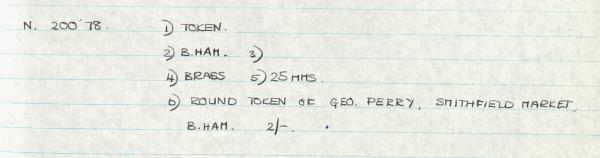 N. 200'78. 1) TOKEN.
2) B.HAM. 3)
4) BRASS 5) 25 MMS.
6) ROUND TOKEN OF GEO. PERRY, SMITHFIELD MARKET,
B.HAM. 2/-.